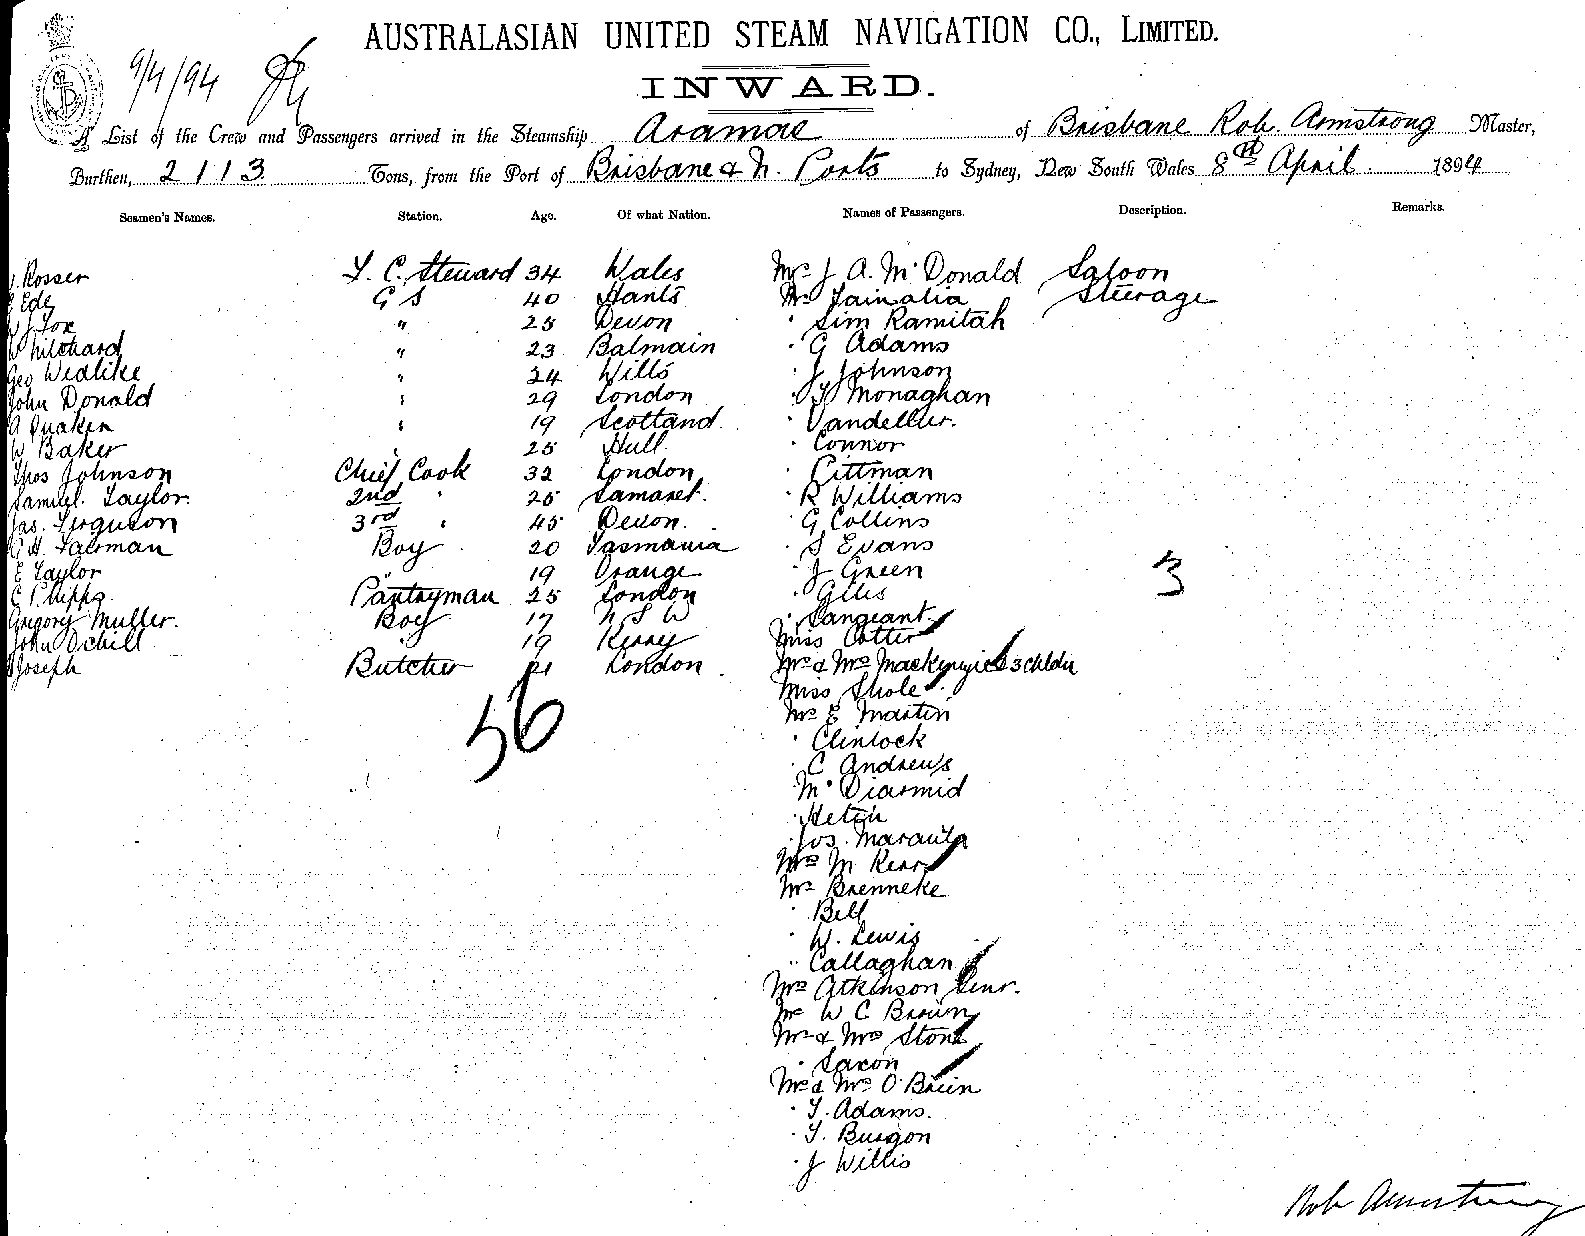 AUSTRALASIAN UNITED STEAM NAVIGATION CO., LIMITED.
9/4/94
INWARD.
A List of the Crew and Passengers arrived in the Steamship Aramac of Brisbane Rob. Armstrong Master,
Burthen, 2113 Tons, from the Port of Brisbane & N. Ports to Sydney, New South Wales 8th April 1894
Seamen's Names. Station. Age. Of what Nation. Names of Passengers. Description. Remarks.
Rosser F. C. Steward 34 Wales Mr J A. McDonald Saloon
Ede G S 40 Hants Mr Steerage
J Fox " 25 Devon " Sim Ramitah
Pritchard " 23 Balmain " G Adams
Geo Wedlike " 24 Wilts " J Johnson
John Donald " 29 London " Monaghan
A Quaken " 19 Scotland "
W Baker 25 Hull " Connor
Thos Johnson Chief Cook 32 London " Pittman
Samuel Taylor 2nd " 25 " R Williams
Jas. Ferguson 3rd " 45 Devon. " G Collins
Boy 20 Tasmania " S Evans
E Taylor 19 Orange " J Green
C Phipps Pantryman 25 London " Giles
Gregory Muller. Boy 17 N S W " Sargeant
John Ochill 19 Kerry Miss Cotter
Joseph Butcher 21 London Mr & Mrs Mackenzie & 3 Chldn
Miss Shole
Mr E Martin
" Clintock
" C Andrews
McDiarmid
" Jos.
Mrs M Kerr
Mr Brenneke
" Bell
" W. Lewis
" Callaghan
Mrs Atkinson Senr.
Mr W C Brown
Mr & Mrs Stone
" Saxon
Mr & Mrs O'Brien
" T. Adams.
" T. Burgon
" J Willis
56
3
Rob Armstrong